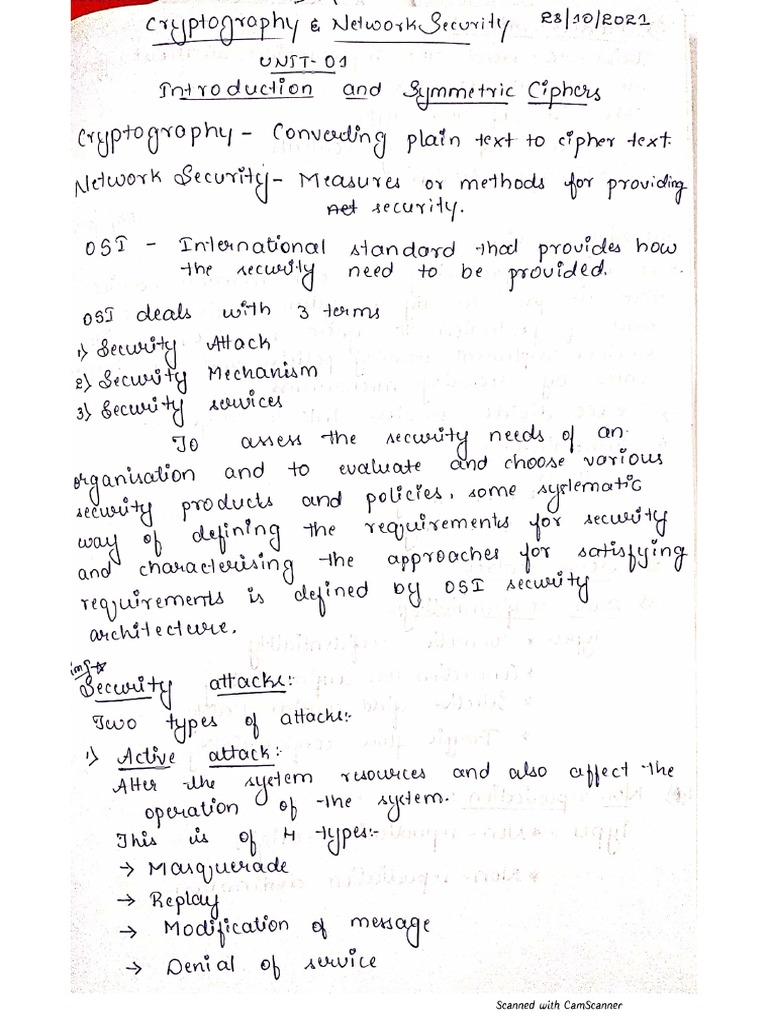 Cryptography & Network Security 28/10/2021
UNIT-01
Introduction and Symmetric Ciphers
Cryptography - Converding plain text to cipher text.
Network Security - Measures or methods for providing
net security.
OSI - International standard that provides how
the security need to be provided.
OSI deals with 3 terms
1) Security Attack
2) Security Mechanism
3) Security services
To assess the security needs of an
organisation and to evaluate and choose various
security products and policies, some systematic
way of defining the requirements for security
and characterising the approaches for satisfying
requirements is defined by OSI security
architecture.
imp ☆
Security attacks:
Two types of attacks:-
1) Active attack:-
Alter the system resources and also affect the
operation of the system.
This is of 4 types:-
→ Masquerade
→ Replay
→ Modification of message
→ Denial of service
Scanned with CamScanner